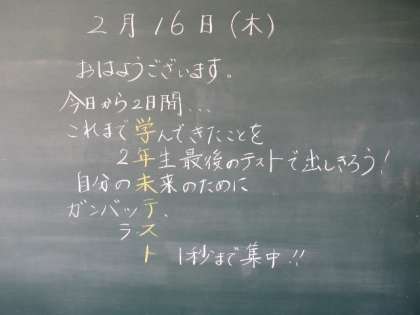 2月16日(木)
おはようございます。
今日から2日間...
これまで学んできたことを
2年生最後のテストで出しきろう!
自分の未来のために
ガンバッテ、
ラスト
1秒まで集中!!